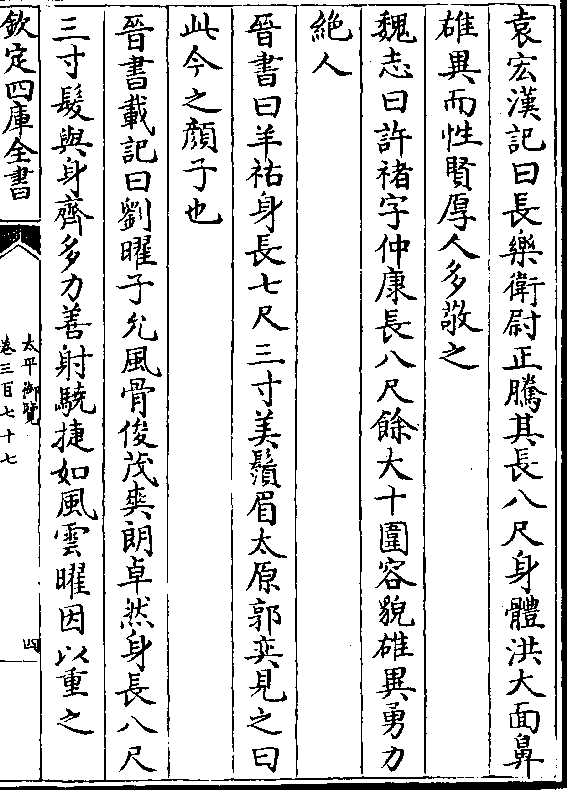 袁宏漢記曰長樂衛尉正騰其長八尺身體洪大面鼻
雄異而性賢厚人多敬之
魏志曰許褚字仲康長八尺餘大十圍容貌雄異勇力
絶人
晉書曰羊祜身長七尺三寸美鬚眉太原郭奕見之曰
此今之顔子也
晉書載記曰劉曜子允風骨俊茂爽朗卓然身長八尺
三寸髮與身齊多力善射驍捷如風雲曜因以重之
欽定四庫全書
太平御覽
卷三百七十七
四